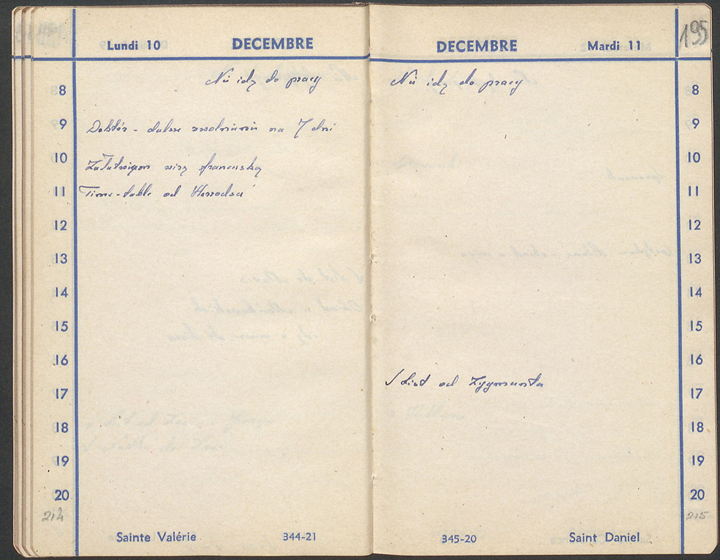 Lundi 10 DECEMBRE
Nie idę do pracy
8
9 Doktór - dalsze zwolnienie na 7 dni
10 Załatwiam wizę francuską
11 Time-table od
12
13
14
15
16
17
18
19
20
214
Sainte Valérie 344-21
195
DECEMBRE Mardi 11
Nie idę do pracy
8
9
10
11
12
13
14
15
16
1 list od Zygmunta
17
18
19
20
215
345-20 Saint Daniel